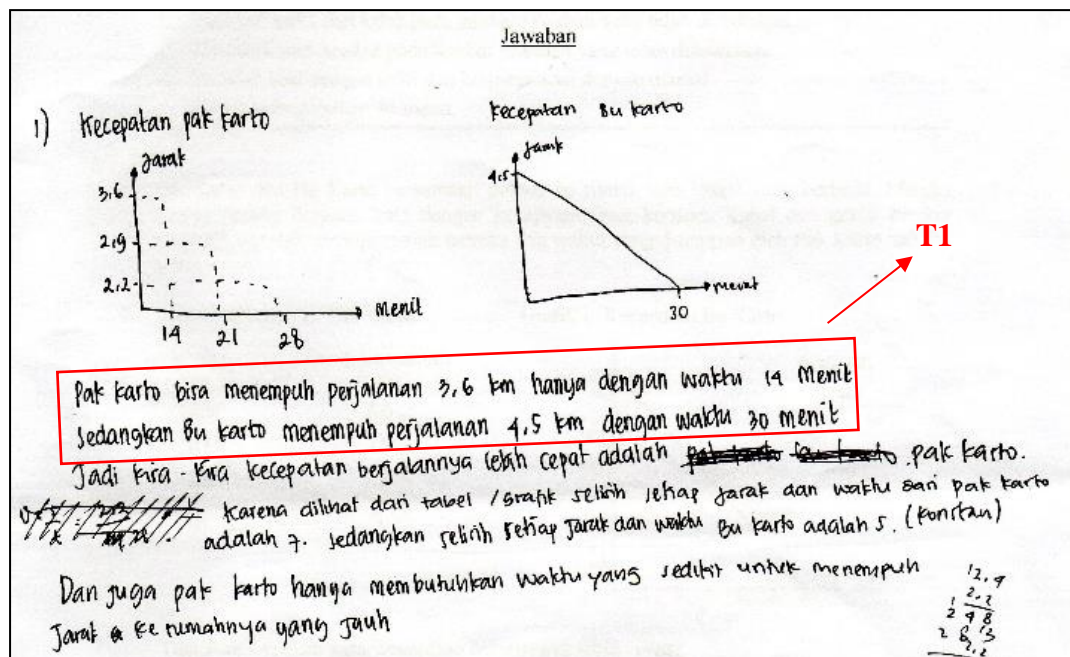 Jawaban
1) Kecepatan pak karto
Jarak
3,6
2,9
2,2
14 21 28
Menit
Kecepatan Bu karto
Jarak
4.5
30
T1
Pak karto bisa menempuh perjalanan 3,6 km hanya dengan waktu 14 Menit
Sedangkan Bu karto menempuh perjalanan 4,5 km dengan waktu 30 menit
Jadi kira-kira kecepatan berjalannya lebih cepat adalah pak karto.
Karena dilihat dari tabel / Grafik selisih setiap jarak dan waktu dari pak karto
adalah 7. Sedangkan selisih setiap Jarak dan waktu Bu karto adalah 5. (Konstan)
Dan juga pak karto hanya membutuhkan waktu yang sedikit untuk menempuh
Jarak ke rumahnya yang Jauh
12,9
2,2